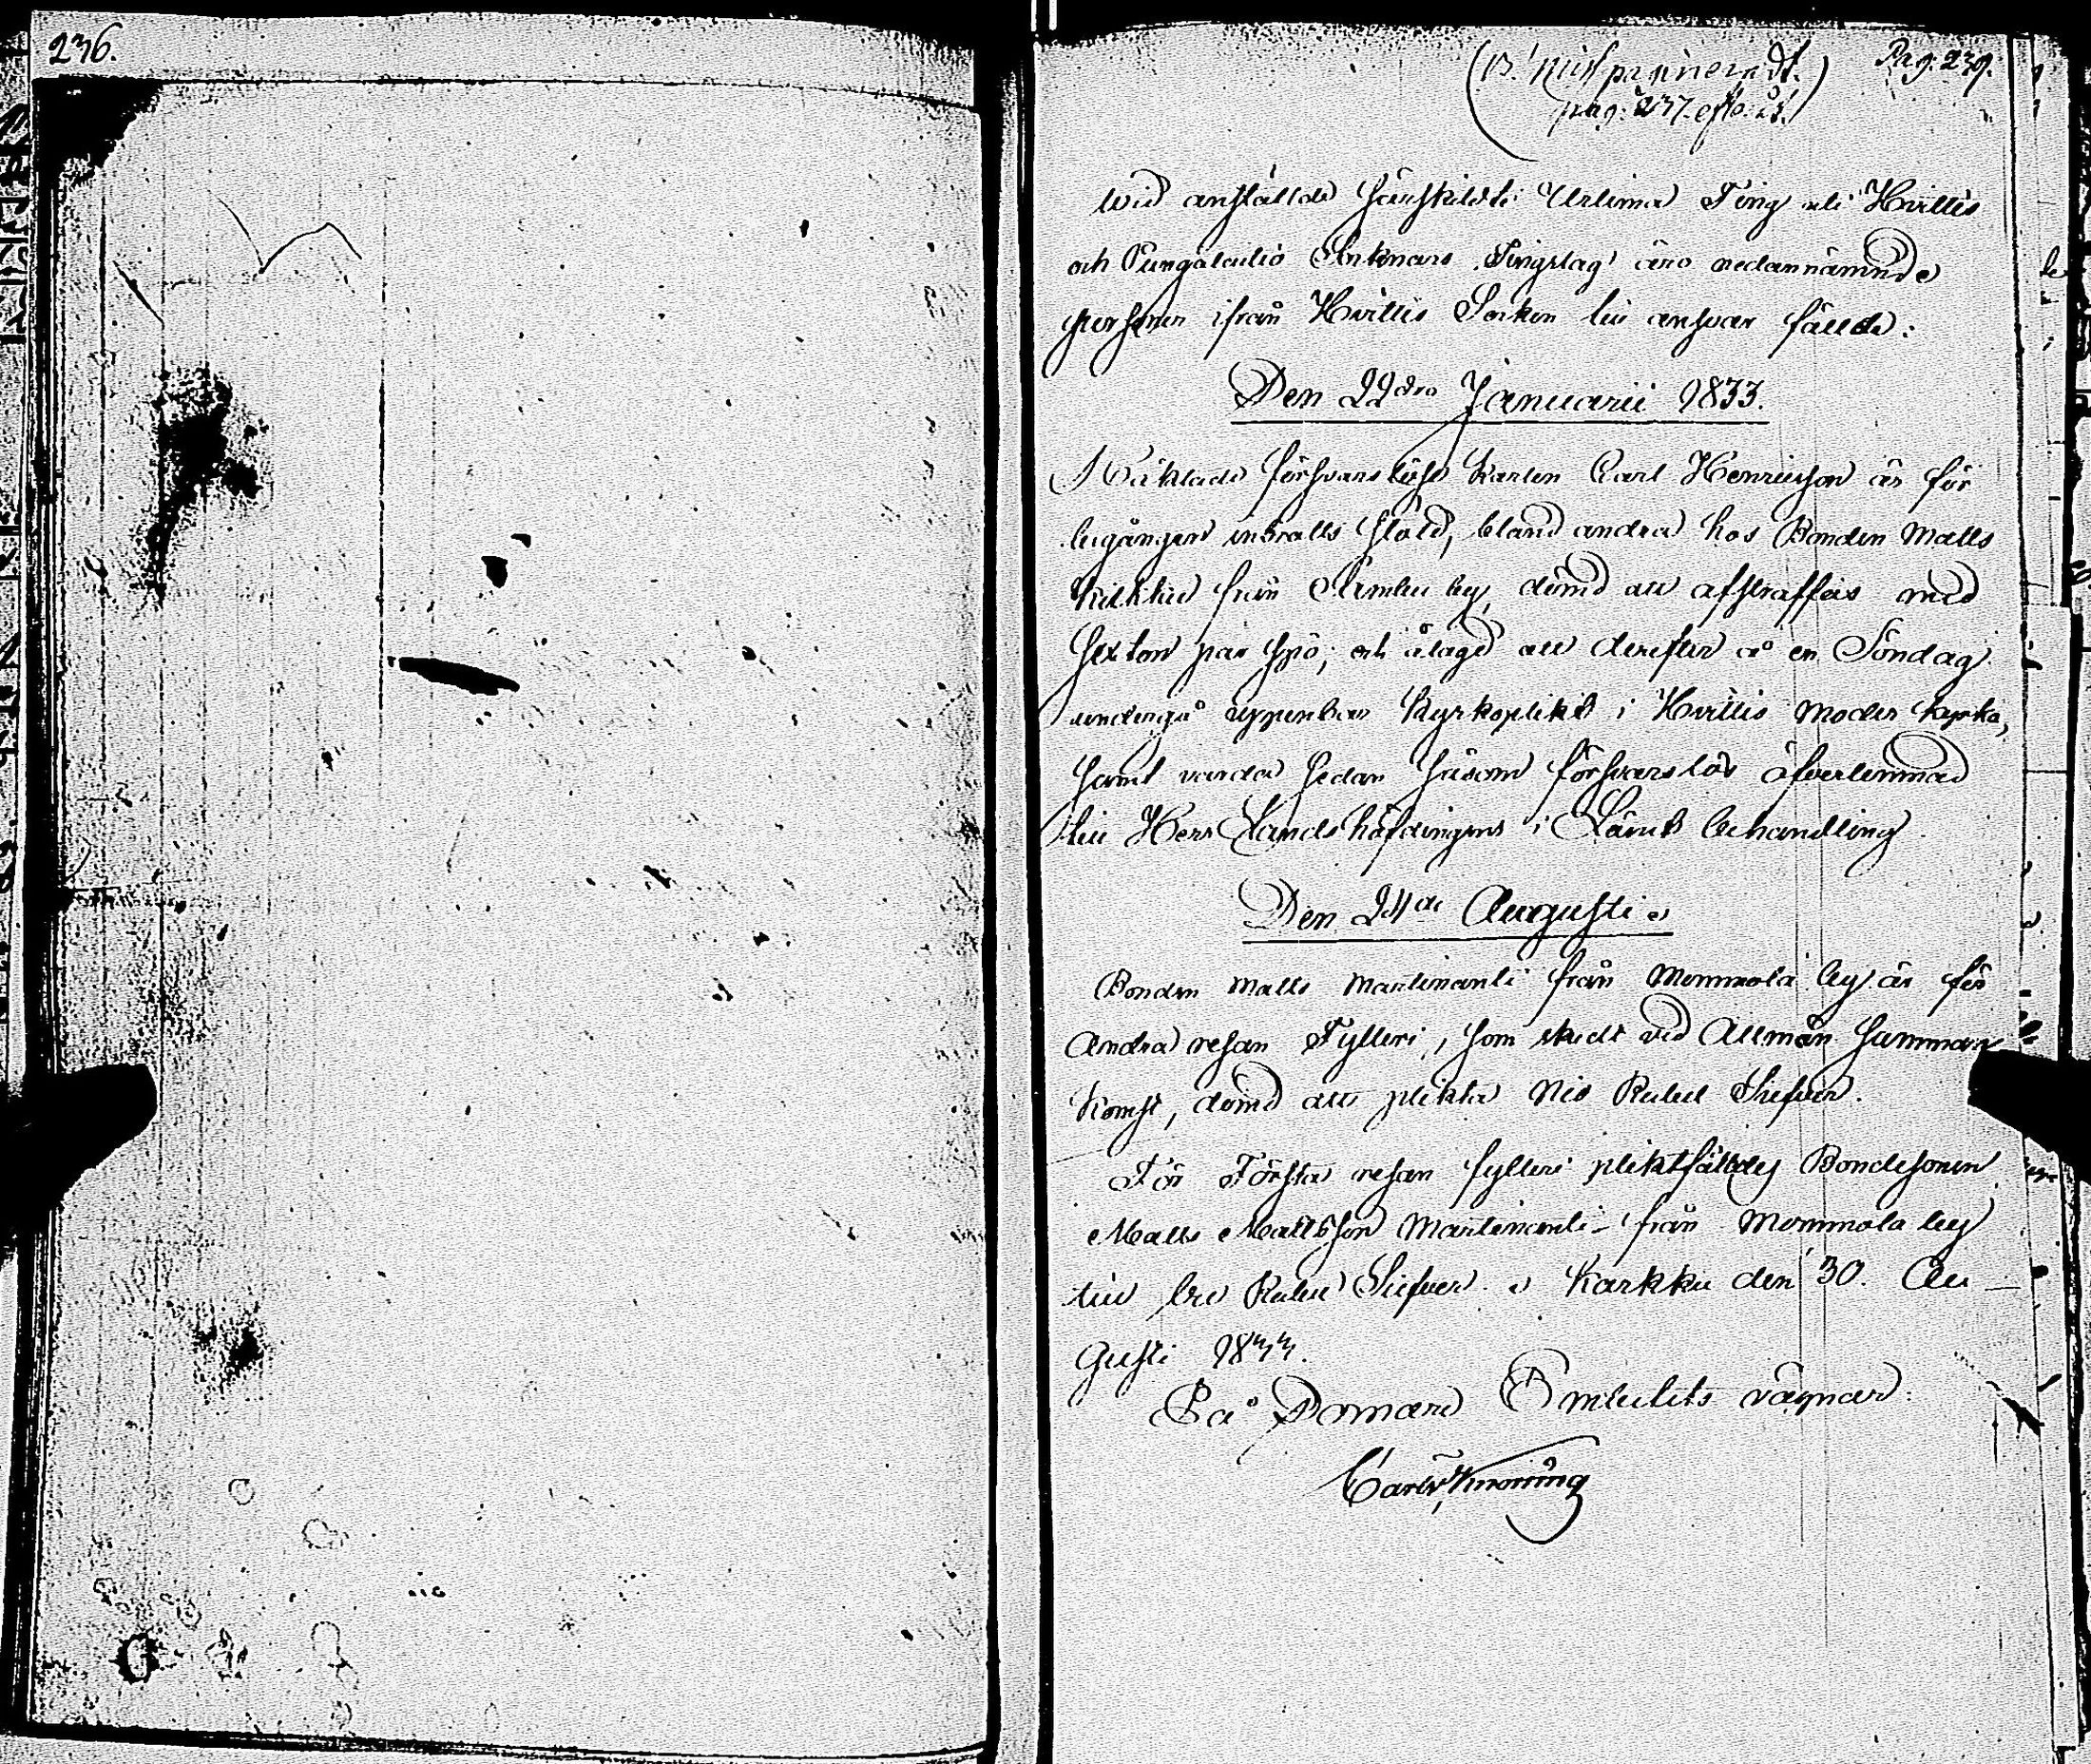 236.
Pag. 239.
pag. 237
Wid anstälde särskilde Urtima Ting uti Hvittis
och Pungalaitio Socknars Tingslag äro nedannämnde
personer ifrån Hvittis Sockn till ansvar fällde:
Den 22dra Januarii 1833.
Häktade försvarslöse Karlen Carl Henricsson är för
begången inbrotts stöld, bland andra hos Bonden Matts
från by, dömd att afstraffas med
sexton par spö; och ålagd att derefter å en Söndag
undergå uppenbar Kyrkoplikt i Hvittis Moder kyrka,
samt varda sedan såsom försvarslös öfverlemnad
till Herr Landshöfdingens i Länet behandling
Den Augusti
Bonden Matts Martimanti från Mommola by är för
Andra resan Fylleri, som skedt vid Allmän samman
komst, dömd att plikta Nio Rubel Silfver.
För Första resan fylleri pliktfälldes Bondesonen
Matts Mattsson Martimanti från Mommola by
till tre Rubel Silfver. Karkku den 30. Au
gusti 1833.
På Domare Embetets vägnar: